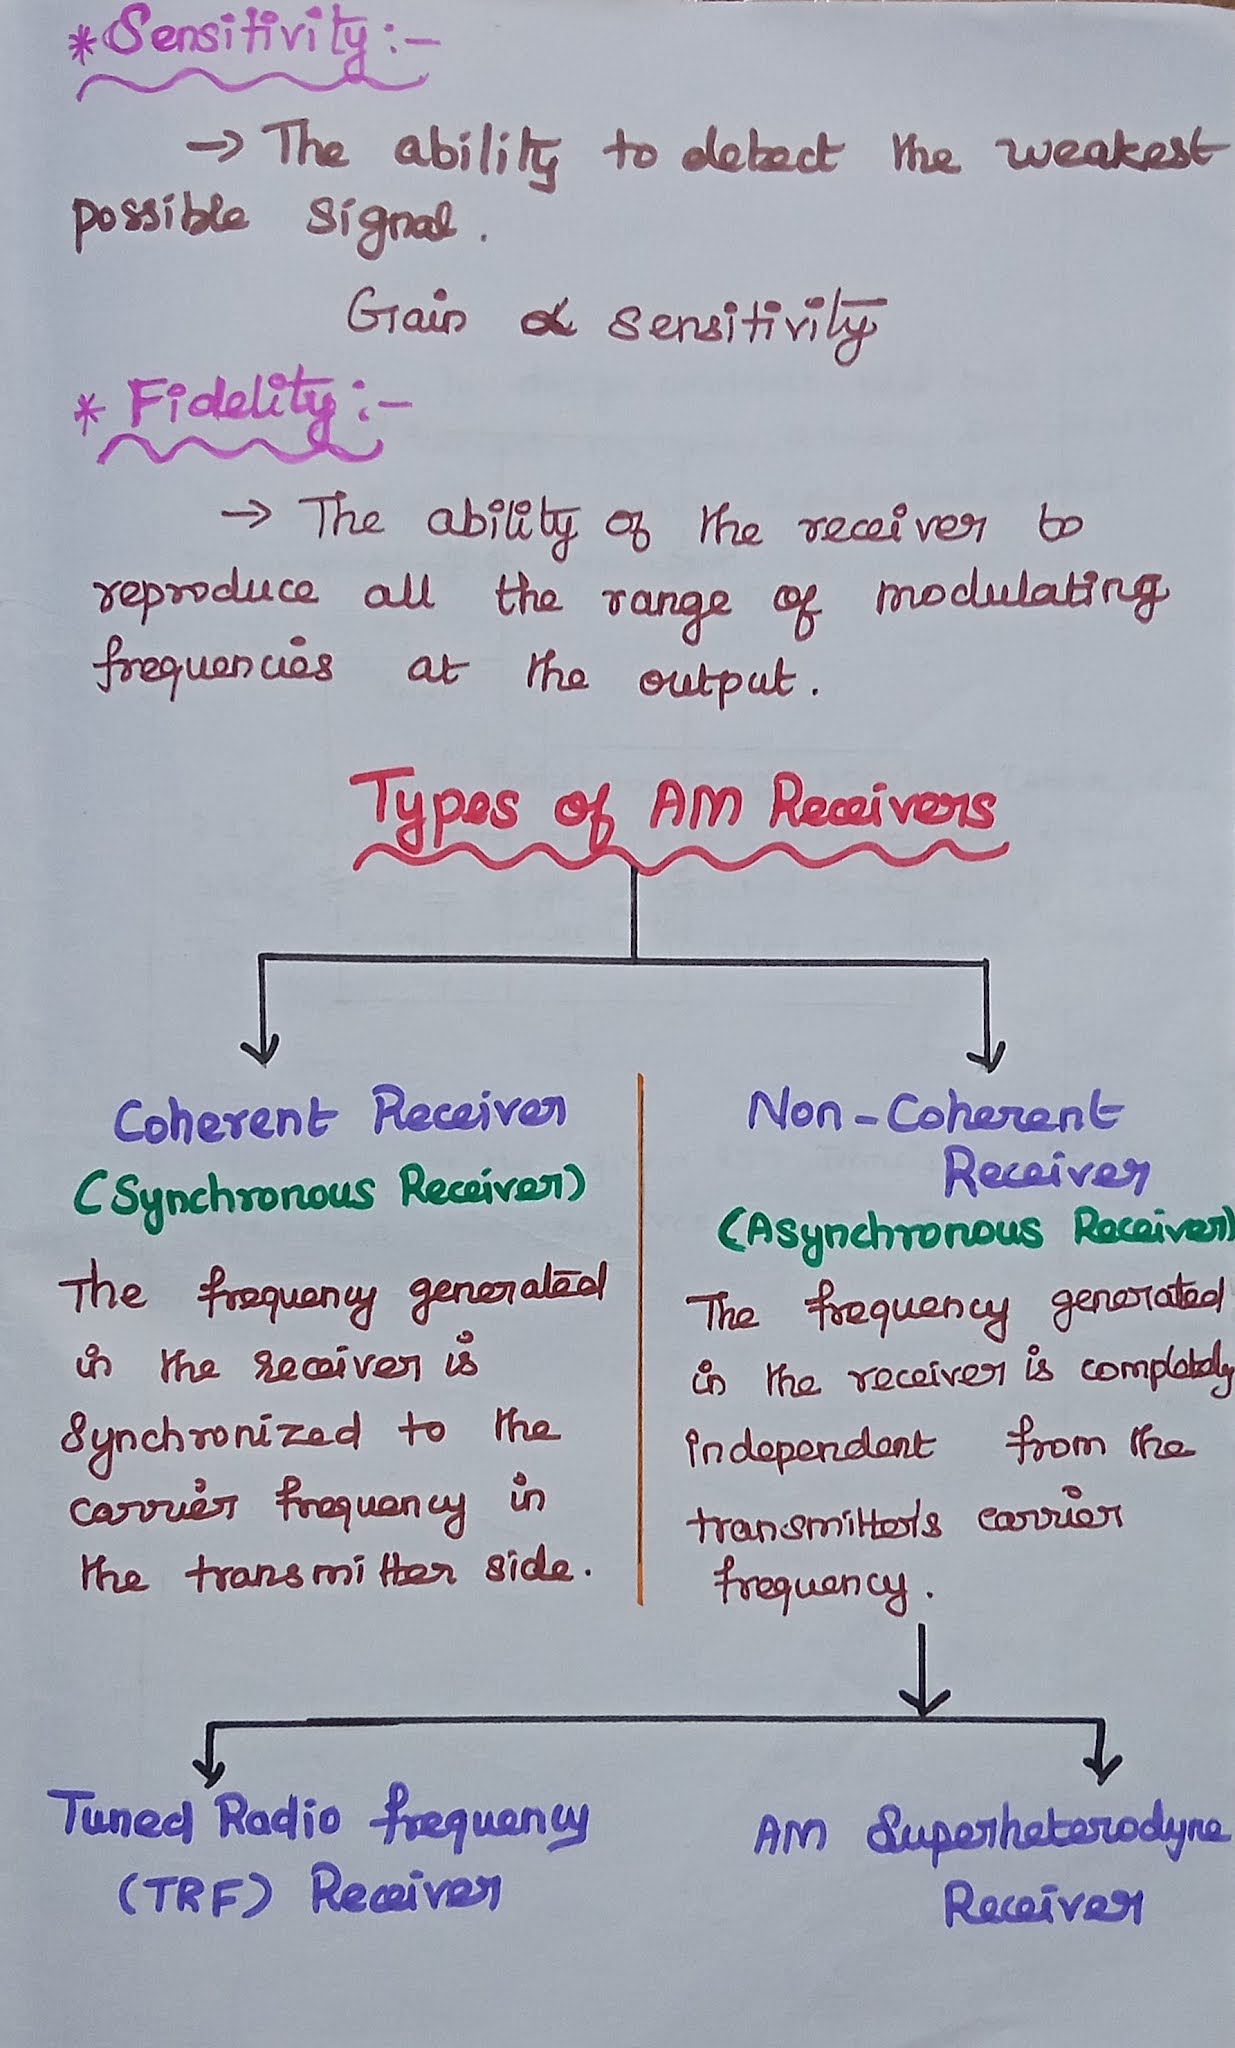 * Sensitivity :-
→ The ability to detect the weakest
possible signal.
Gain ∝ sensitivity
* Fidelity :-
→ The ability of the receiver to
reproduce all the range of modulating
frequencies at the output.
Types of AM Receivers
Coherent Receiver
(Synchronous Receiver)
The frequency generated
in the receiver is
synchronized to the
carrier frequency in
the transmitter side.
Non-Coherent
Receiver
(Asynchronous Receiver)
The frequency generated
in the receiver is completely
independent from the
transmitters carrier
frequency.
Tuned Radio frequency
(TRF) Receiver
AM Superheterodyne
Receiver